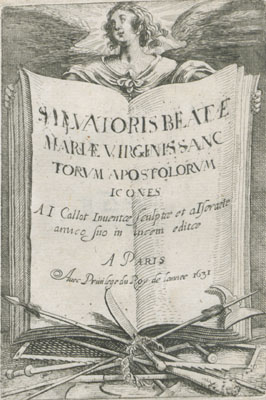 SALVATORIS BEATÆ
MARIÆ VIRGINIS SANC
TORVM APOSTOLORVM
ICONES
A I Callot Inventæ sculptæ et
amico suo in lucem editæ
A PARIS
Avec Privilege du Roy de Janvier 1631